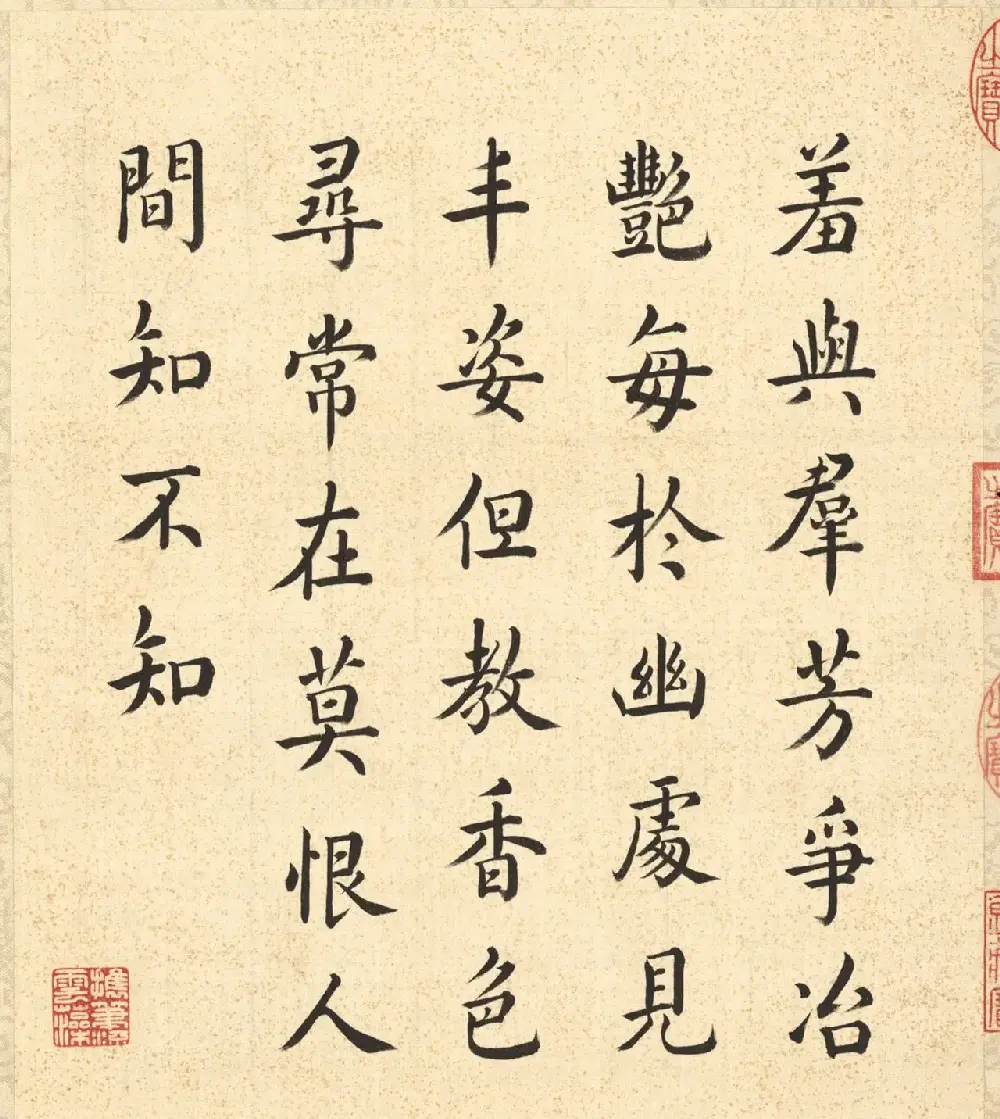 羞與羣芳爭冶
艷每於幽處見
丰姿但教香色
尋常在莫恨人
間知不知